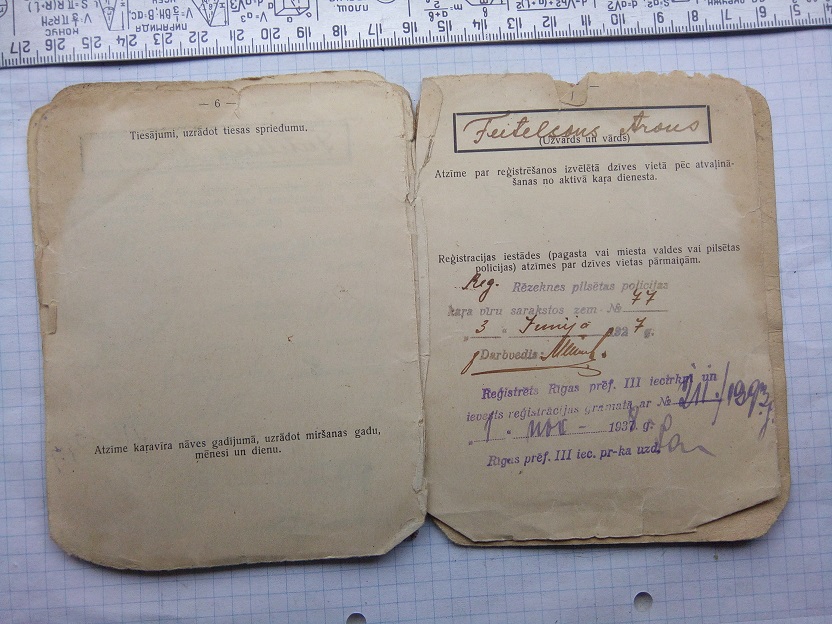 — 6 —
Tiesājumi, uzrādot tiesas spriedumu.
Atzīme karavīra nāves gadījumā, uzrādot miršanas gadu,
mēnesi un dienu.
Feitelsons Arons
(Uzvārds un vārds)
Atzīme par reģistrēšanos izvēlētā dzīves vietā pēc atvaļinā-
šanas no aktivā kaŗa dienesta.
Reģistracijas iestādes (pagasta vai miesta valdes vai pilsētas
policijas) atzīmes par dzīves vietas pārmaiņām.
Reģ. Rēzeknes pilsētas policijas
kaŗa vīru sarakstos zem № 77
„ 3 “ Junijā 1927 g.
Darbvedis:
Reģistrēts Rīgas pref. III iecirknī un
ievests reģistrācijas grāmatā ar №
„ 1 . nov — 193 g.
Rīgas pref. III iec. pr-ka uzd.